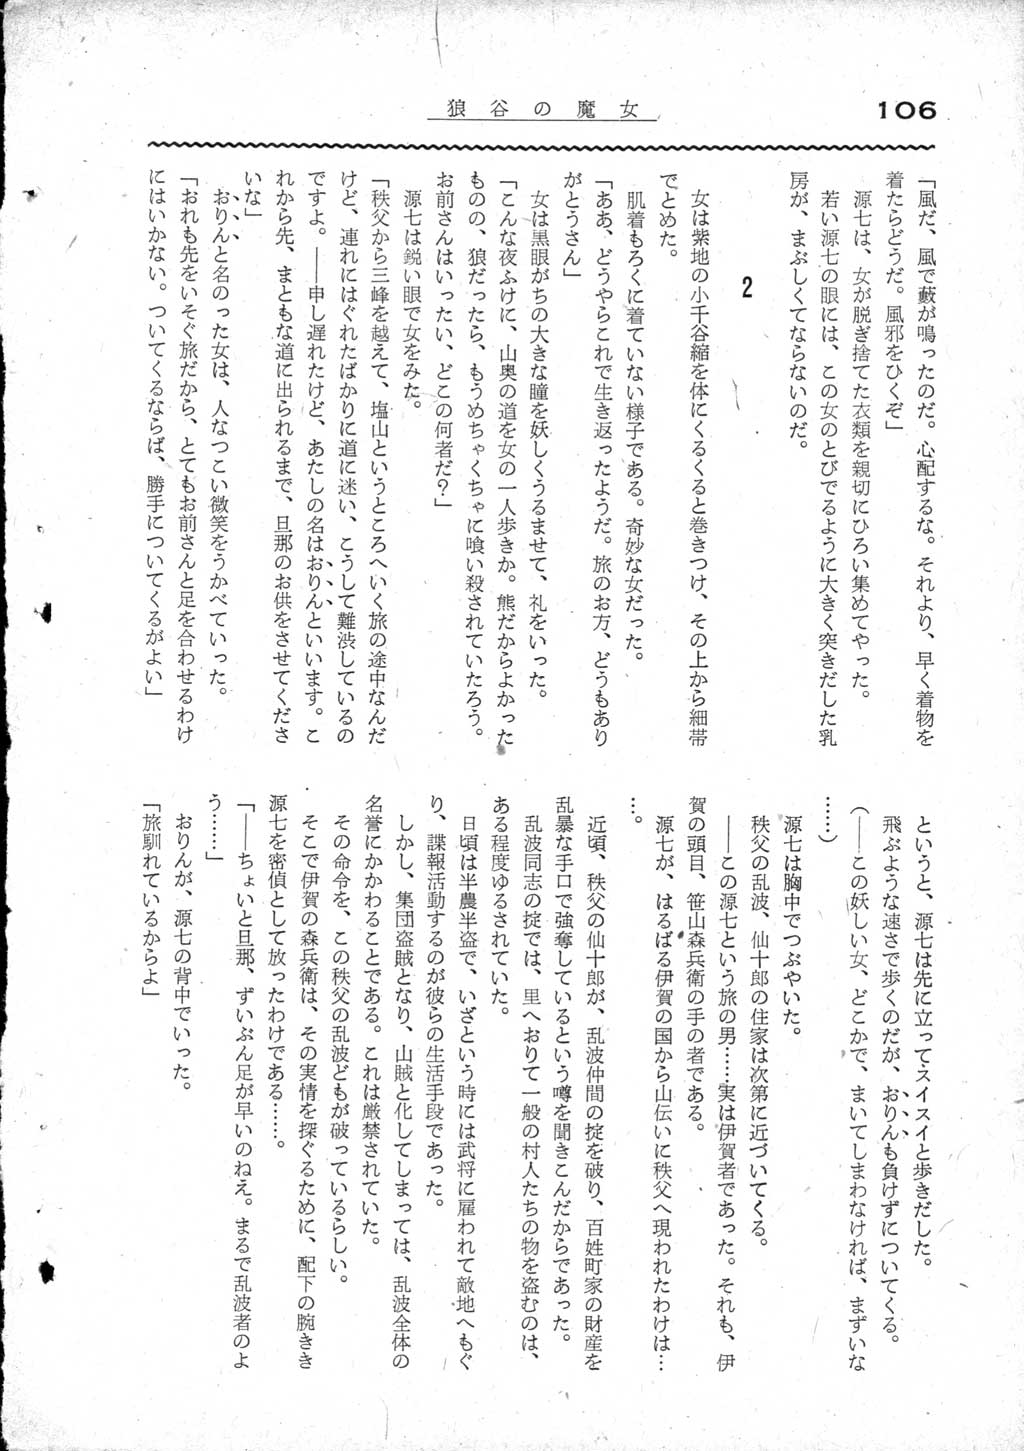 狼谷の魔女
106
「風だ、風で藪が鳴ったのだ。心配するな。それより、早く着物を
着たらどうだ。風邪をひくぞ」
源七は、女が脱ぎ捨てた衣類を親切にひろい集めてやった。
若い源七の眼には、この女のとびでるように大きく突きだした乳
房が、まぶしくてならないのだ。
2
女は紫地の小千谷縮を体にくるくると巻きつけ、その上から細帯
でとめた。
肌着もろくに着ていない様子である。奇妙な女だった。
「ああ、どうやらこれで生き返ったようだ。旅のお方、どうもあり
がとうさん」
女は黒眼がちの大きな瞳を妖しくうるませて、礼をいった。
「こんな夜ふけに、山奥の道を女の一人歩きか。熊だからよかった
ものの、狼だったら、もうめちゃくちゃに喰い殺されていたろう。
お前さんはいったい、どこの何者だ？」
源七は鋭い眼で女をみた。
「秩父から三峰を越えて、塩山というところへいく旅の途中なんだ
けど、連れにはぐれたばかりに道に迷い、こうして難渋しているの
ですよ。――申し遅れたけど、あたしの名はおりんといいます。こ
れから先、まともな道に出られるまで、旦那のお供をさせてくださ
いな」
おりんと名のった女は、人なつこい微笑をうかべていった。
「おれも先をいそぐ旅だから、とてもお前さんと足を合わせるわけ
にはいかない。ついてくるならば、勝手についてくるがよい」
というと、源七は先に立ってスイスイと歩きだした。
飛ぶような速さで歩くのだが、おりんも負けずについてくる。
（――この妖しい女、どこかで、まいてしまわなければ、まずいな
……）
源七は胸中でつぶやいた。
秩父の乱波、仙十郎の住家は次第に近づいてくる。
――この源七という旅の男……実は伊賀者であった。それも、伊
賀の頭目、笹山森兵衛の手の者である。
源七が、はるばる伊賀の国から山伝いに秩父へ現われたわけは…
…。
近頃、秩父の仙十郎が、乱波仲間の掟を破り、百姓町家の財産を
乱暴な手口で強奪しているという噂を聞きこんだからであった。
乱波同志の掟では、里へおりて一般の村人たちの物を盗むのは、
ある程度ゆるされていた。
日頃は半農半盗で、いざという時には武将に雇われて敵地へもぐ
り、諜報活動するのが彼らの生活手段であった。
しかし、集団盗賊となり、山賊と化してしまっては、乱波全体の
名誉にかかわることである。これは厳禁されていた。
その命令を、この秩父の乱波どもが破っているらしい。
そこで伊賀の森兵衛は、その実情を探ぐるために、配下の腕きき
源七を密偵として放ったわけである……。
「――ちょいと旦那、ずいぶん足が早いのねえ。まるで乱波者のよ
う……」
おりんが、源七の背中でいった。
「旅馴れているからよ」